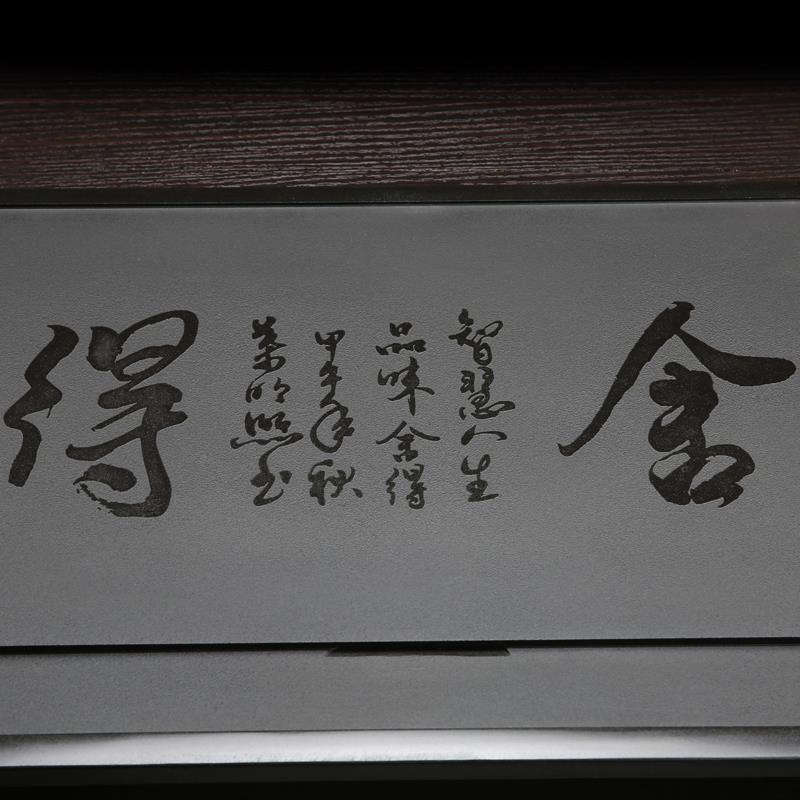 舍
智慧人生
品味舍得
甲午年秋
明照书
得